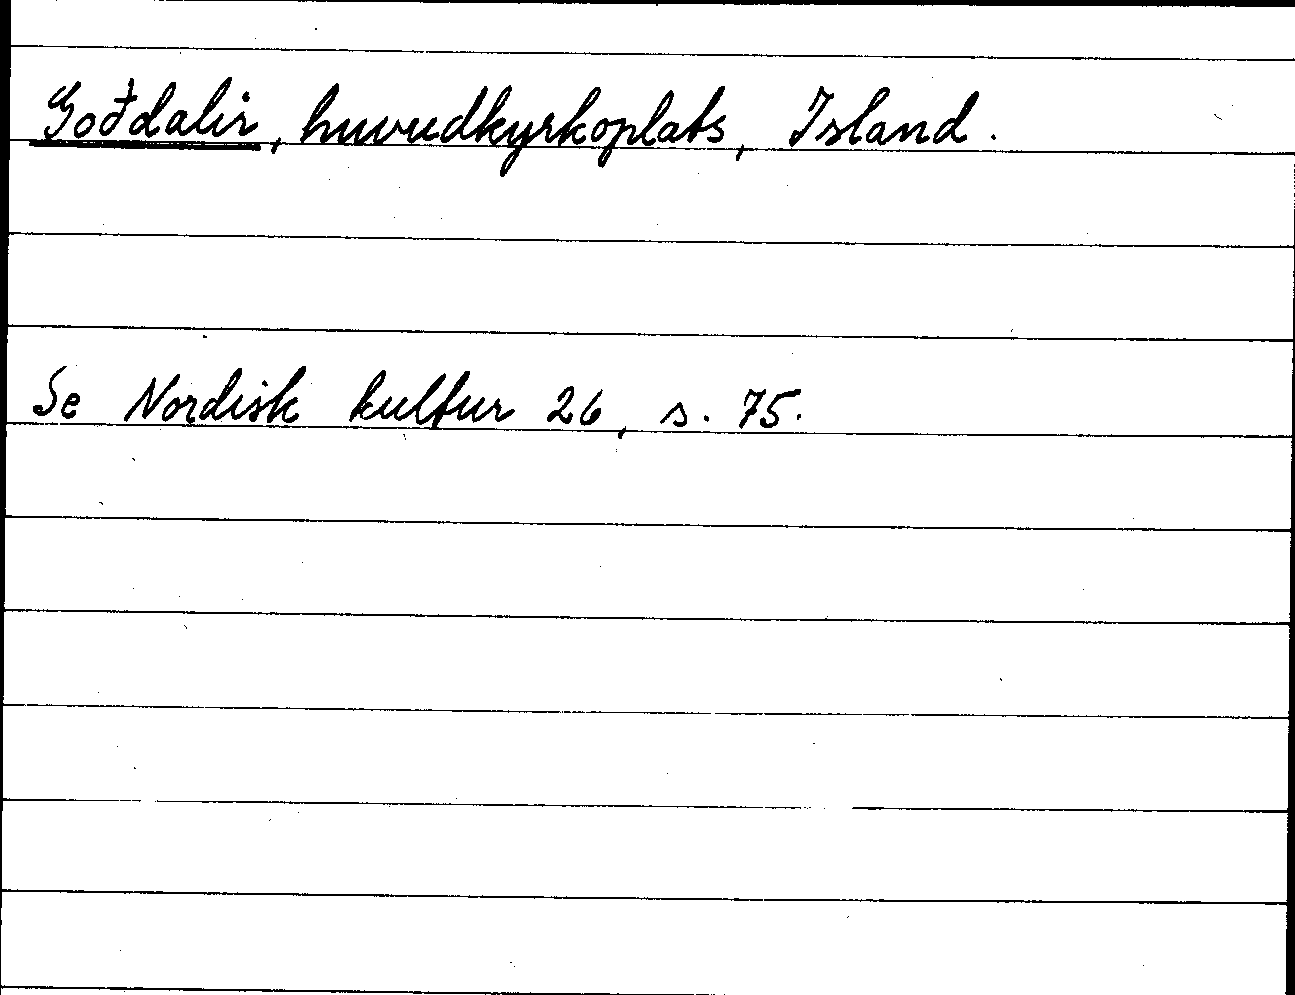 Goðdalir, huvudkyrkoplats, Island.
Se Nordisk kultur 26, s. 75.